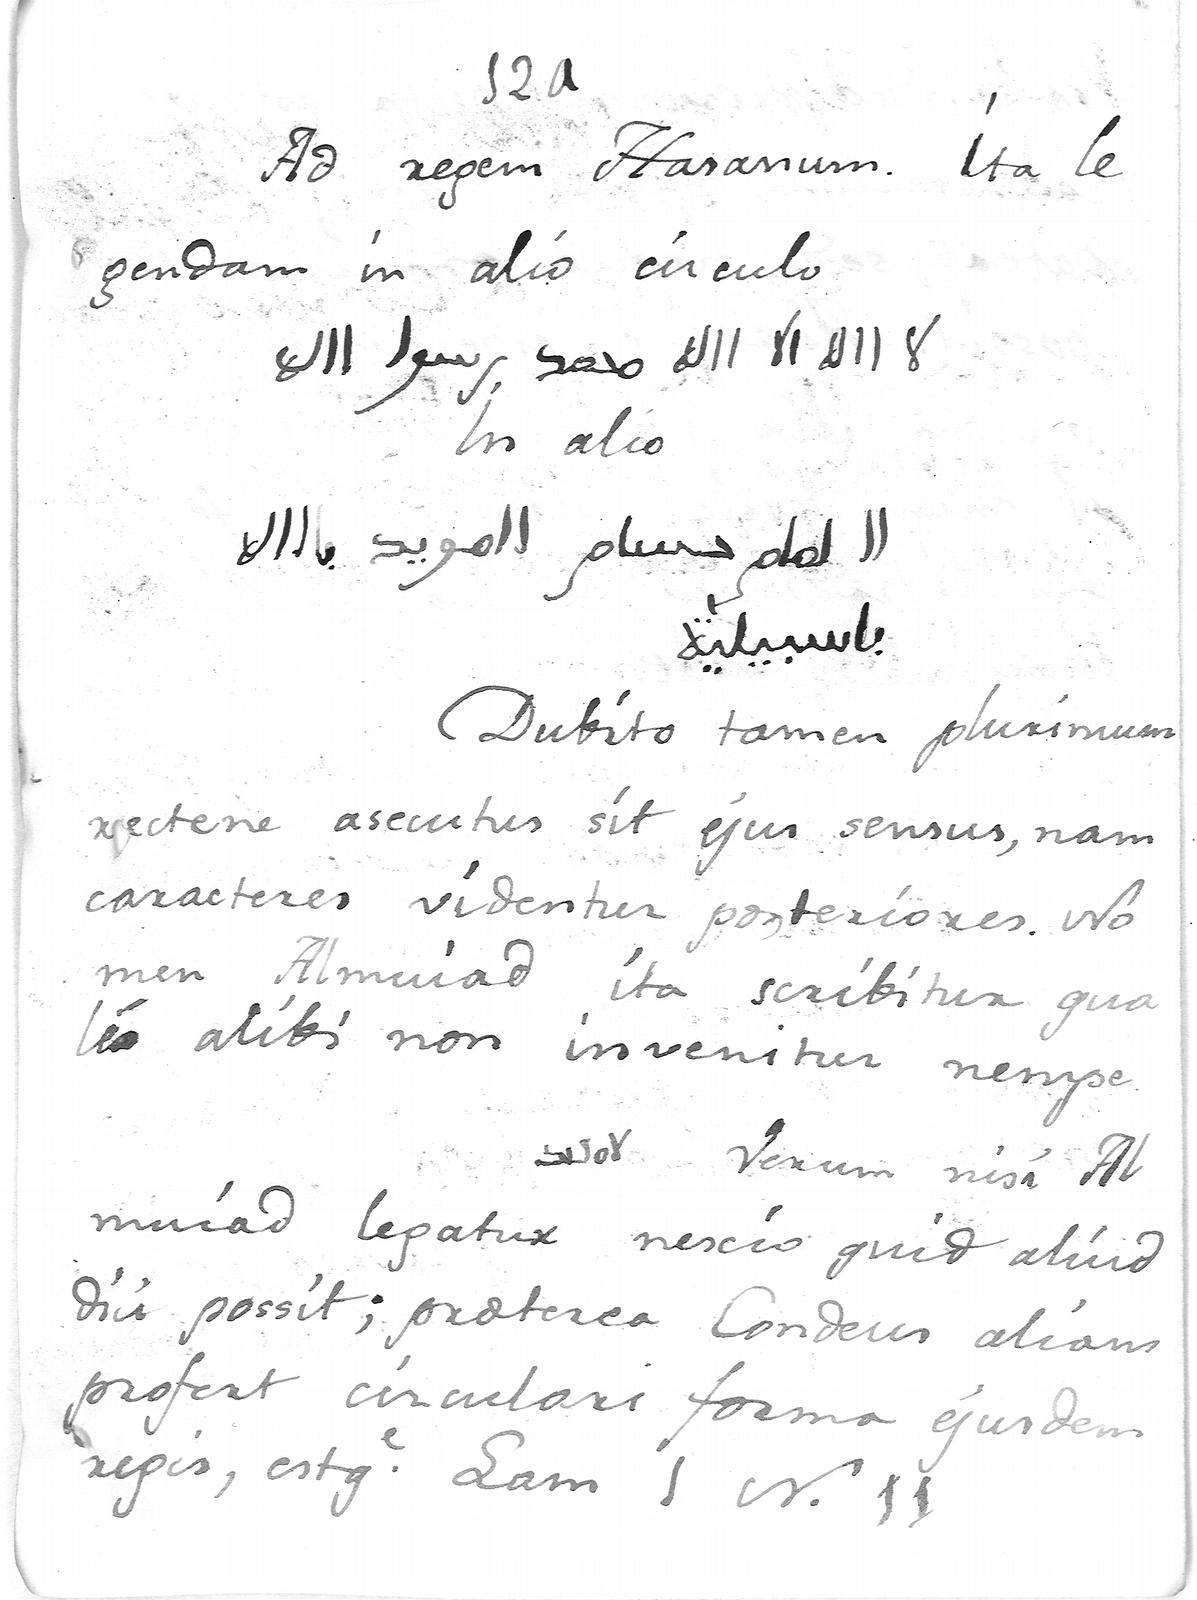 12a
Ad regem Hasanum. Ita le
gendam in alio circulo
لا االله الا االله محمد رسوا االله
In alio
اا امام حسام االمويد باااله
باسبيلية
Dubito tamen plurimum
rectene asecutus sit ejus sensus, nam
caracteres videntur posteriores. No
men Almuiad ita scribitur qua
lis alibi non invenitur nempe
Verum nisi Al
muiad legatur nescio quid aliud
dici possit; præterea Condeus aliam
profert circulari forma ejusdem
regis, estq.e Lam 1 N. 11